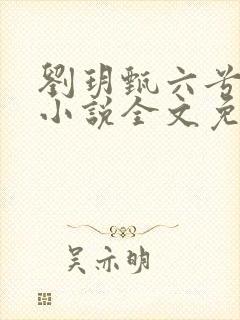 劉玥甄六兮
小說全文免
吳亦明